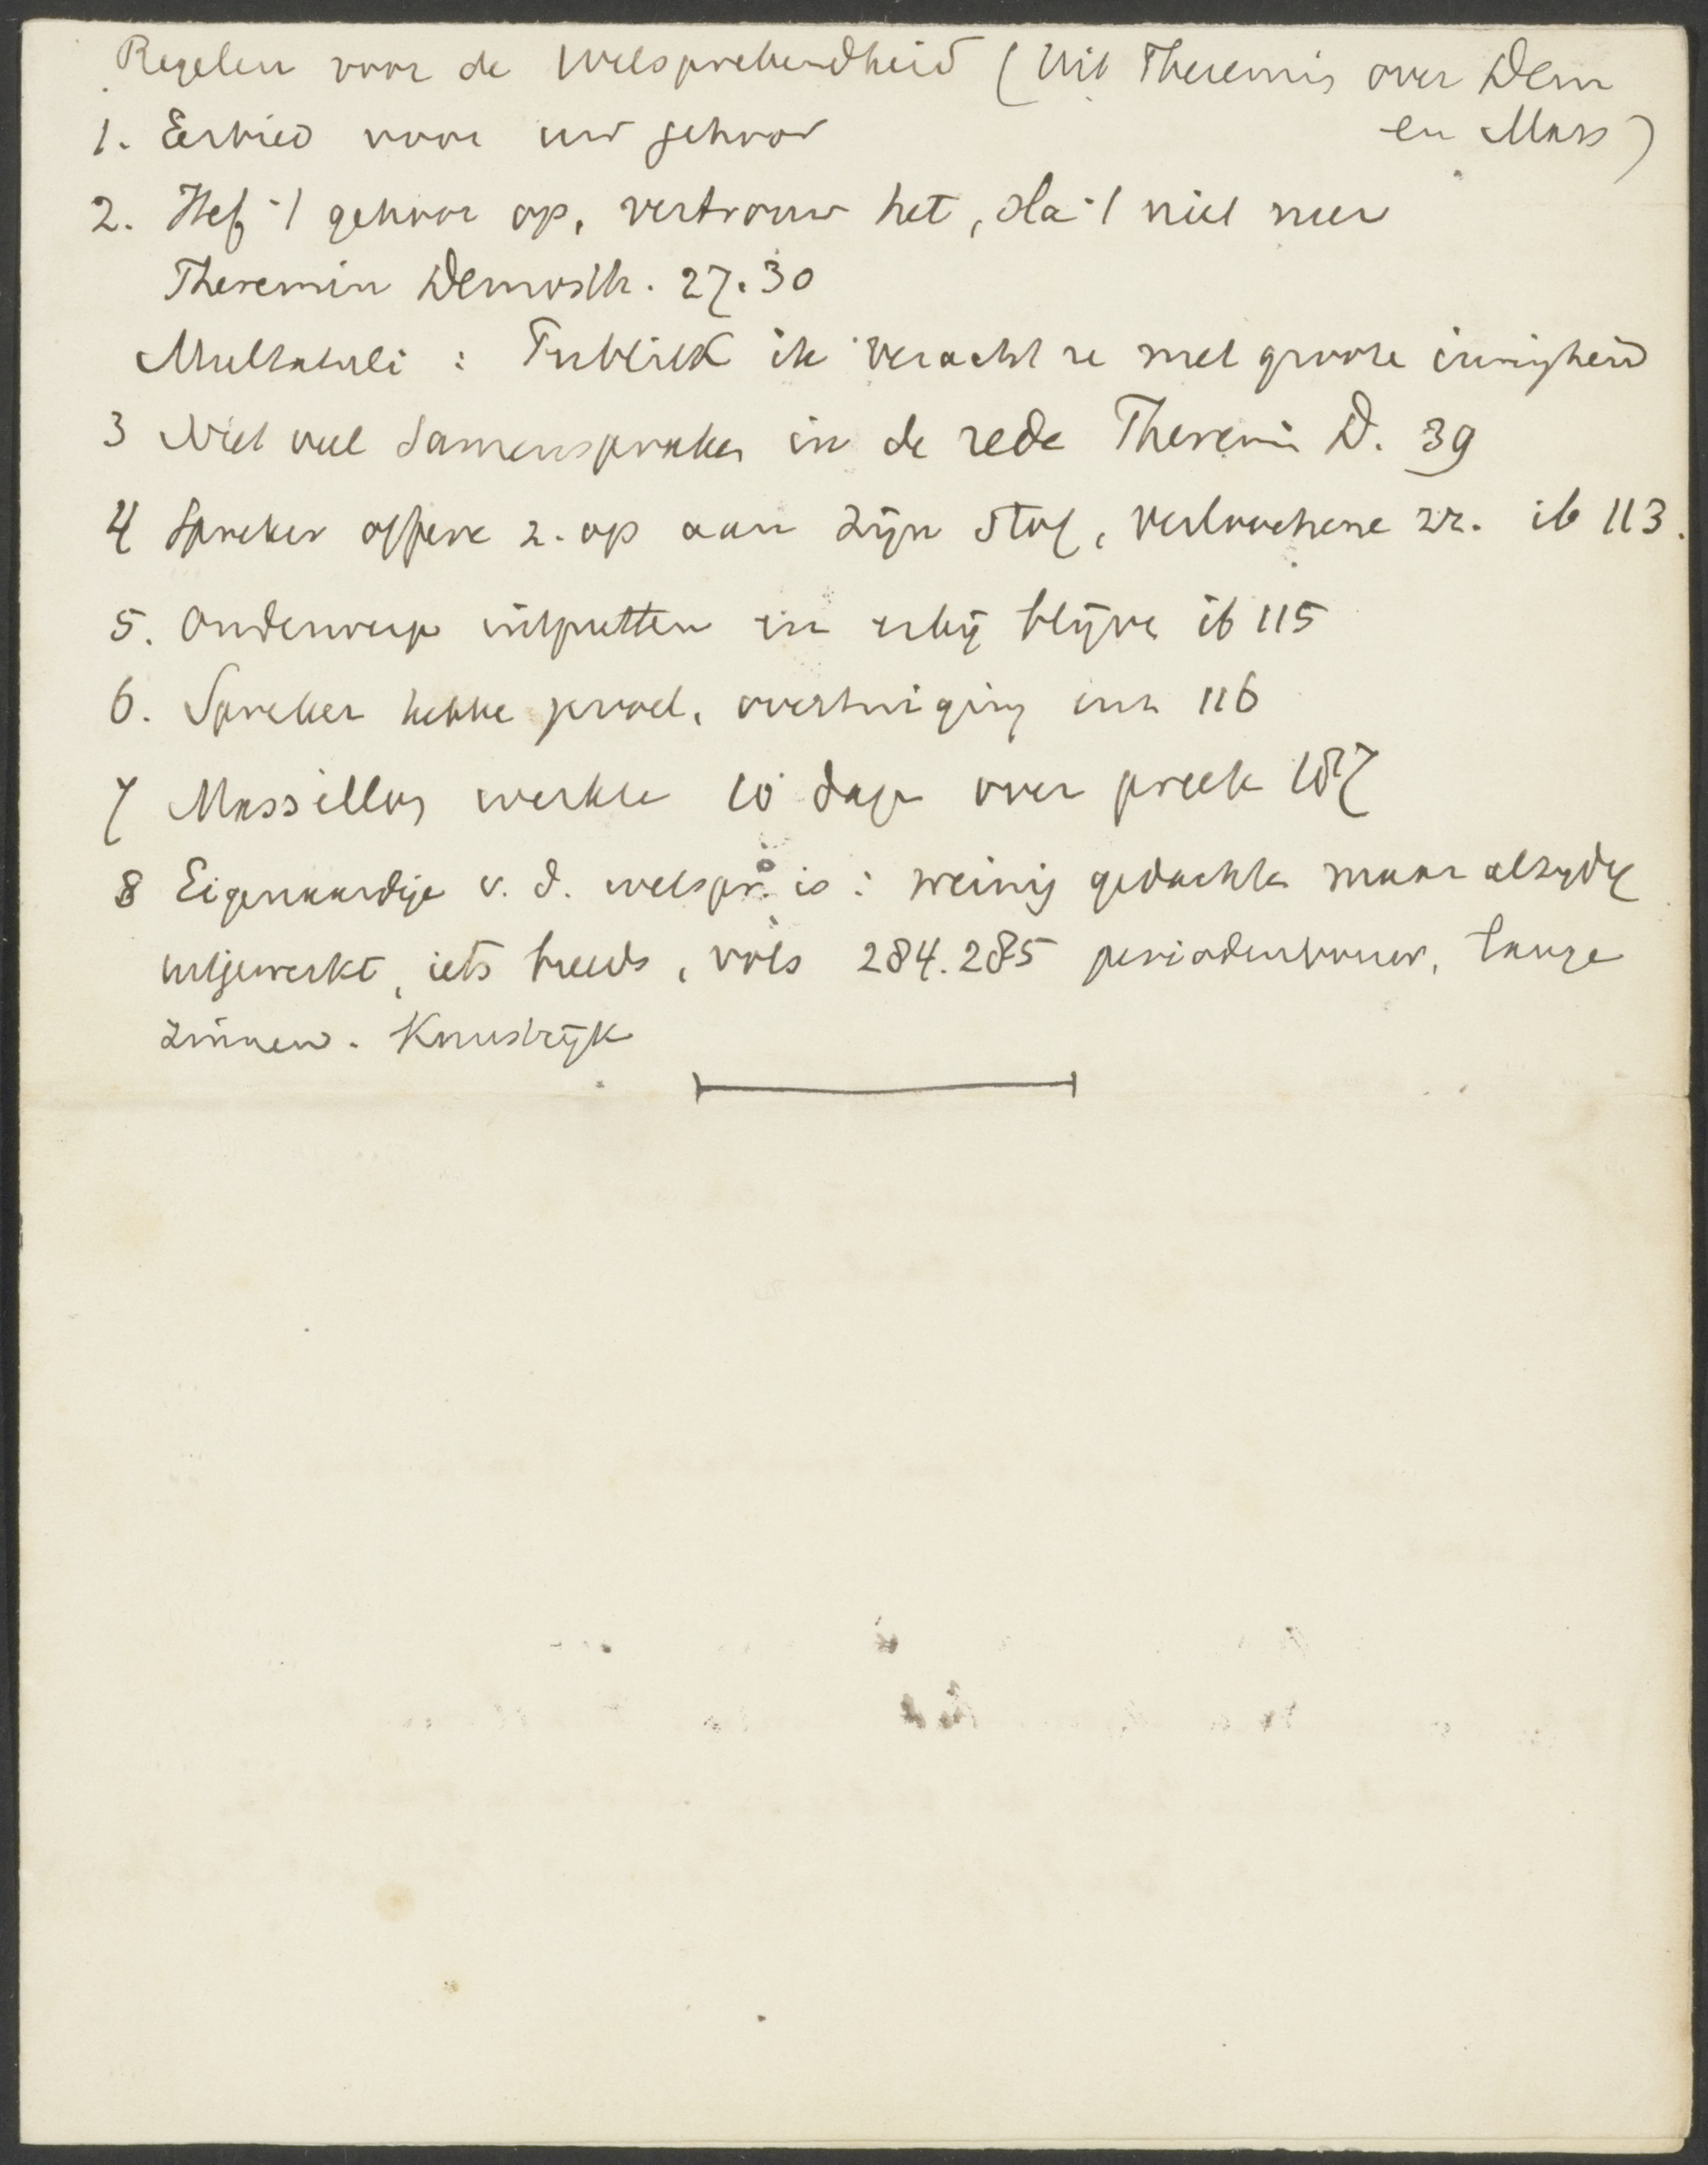 Regelen voor de Welsprekendheid (Uit Theremin over Dem
en Mass)
1. Eerbied voor uw gehoor
2. Hef 't gehoor op, vertrouw het, sla 't niet neer
Theremin Demosth. 27.30
Multatuli : Publiek ik veracht u met groote innigheid
3 Niet veel samenspraken in de rede Theremin D. 39
4 Spreker offere z. op aan zijn stof, verloochene zr. ib 113.
5. Onderwerp uitputten en erbij blijven ib 115
6. Spreker hebbe gevoel, overtuiging enz 116
7 Massillon werkte 10 dagen over preek 187
8 Eigenaardige v. d. welspr. is : weinig gedachten maar alzijdig
uitgewerkt, iets breeds, vols 284.285 periodenbouw, lange
zinnen.